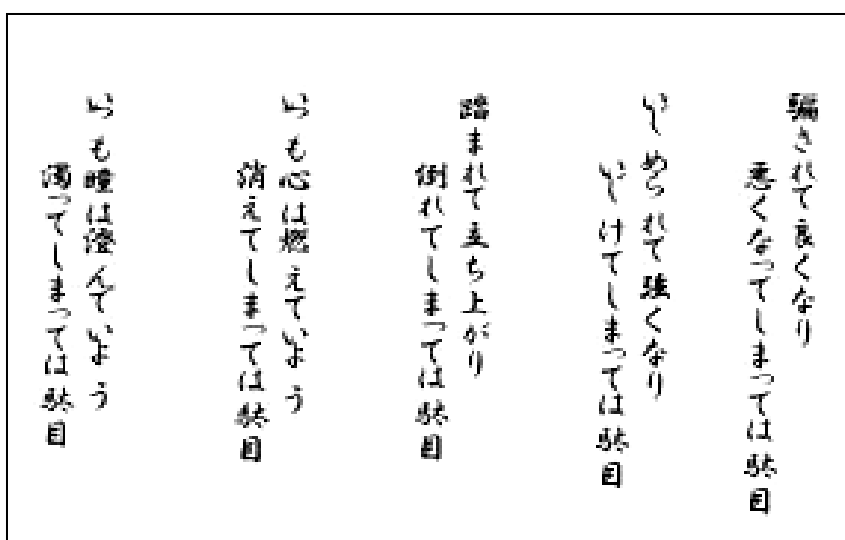 騙されて良くなり
悪くなってしまっては駄目
いじめられて強くなり
いじけてしまっては駄目
踏まれて立ち上がり
倒れてしまっては駄目
いつも心は燃えていよう
消えてしまっては駄目
いつも瞳は澄んでいよう
濁ってしまっては駄目